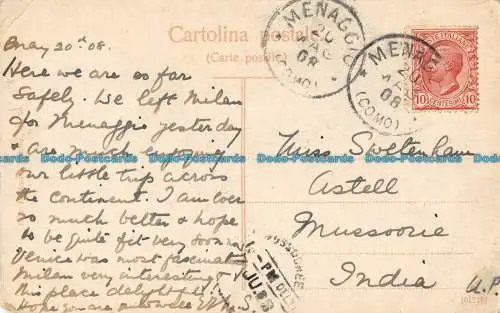 Cartolina postale
(Carte postale)
May 20th 08.
Here we are so far
safely. We left Milan
for Menaggio yesterday
& are much enjoying
our little trip across
the continent. I am ever
so much better & hope
to be quite fit very soon
Venice was most fascinating
Milan very interesting &
this place delightful.
Hope you are
MENAGGIO
20
08
(COMO)
MENAGGIO
20
08
(COMO)
POSTE ITALIANE
10
10
CENTESIMI
Miss Swetenham
Astell
Mussoorie
India
U.P.
MUSSOOREE
JU
08
Dodo-Postcards Dodo-Postcards Dodo-Postcards Dodo-Postcards Dodo-Postcards